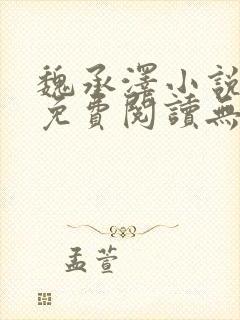 魏承澤小說
免費閱讀無
孟萱